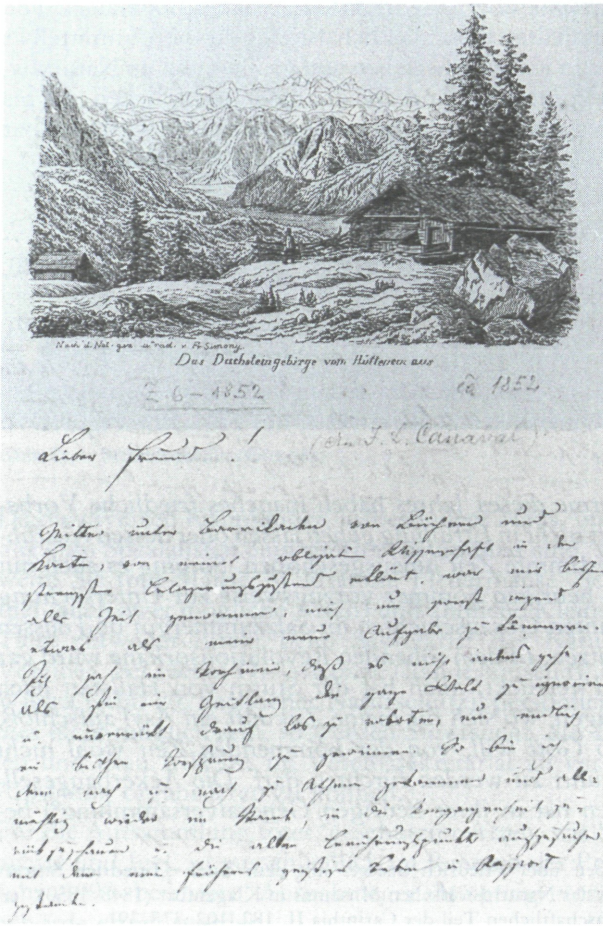 Nach d. Nat. gez. u. rad. v. Fr. Simony
Das Dachsteingebirge vom Hütteneck aus
Z. 6 – 1852 ca 1852
(An J. L. Canaval)
Lieber Freund!
Mitten unter Barrikaden von Büchern und
Karten von meiner obligaten Wissenschaft in den
strengsten Belagerungszustand erklärt, war mir bisher
alle Zeit genommen, mich um sonst irgend
etwas als meine neue Aufgabe zu kümmern.
Ich sah im Vorhinein, daß es nicht anders gehe,
als für eine Zeitlang die ganze Welt zu ignoriren
u. unverrückt darauf los zu roboten, um endlich
ein bischen Vorsprung zu gewinnen. So bin ich
denn nach und nach zu Athem gekommen und all-
mählig wieder im Stande in die Vergangenheit zu-
rückzuschauen u. die alten Berührungspunkte aufzusuchen
mit denen mein früheres geistiges Leben in Rapport